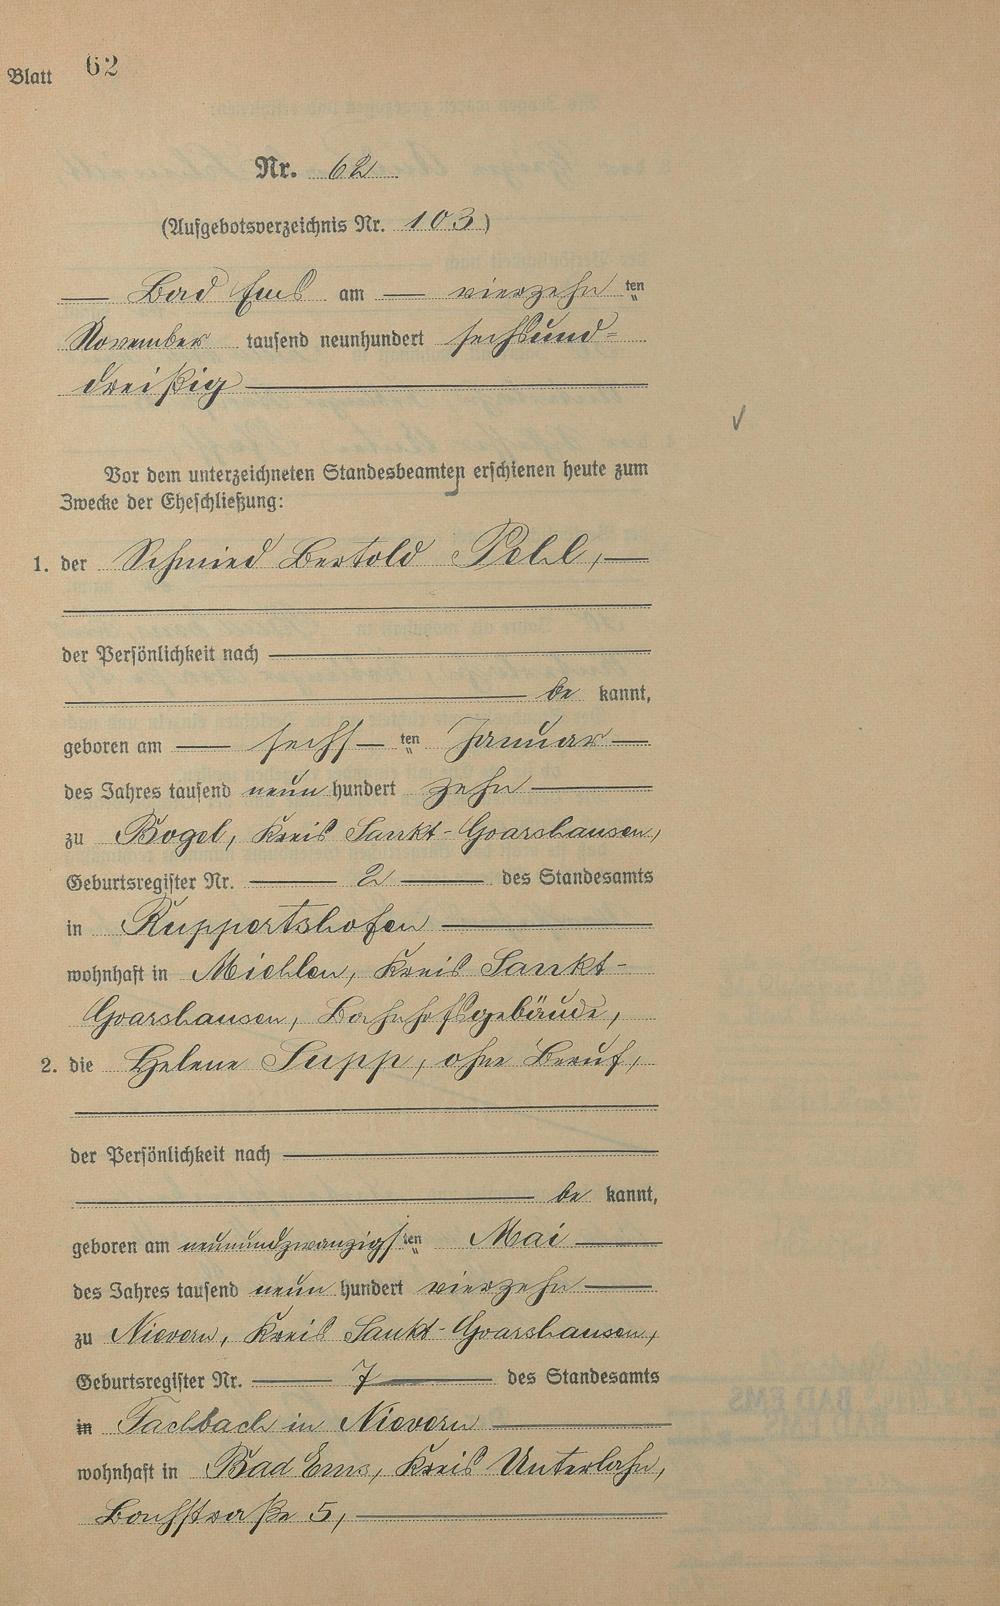 Blatt 62
Nr. 62
(Aufgebotsverzeichnis Nr. 103)
Bad Ems am vierzehn ten
November tausend neunhundert sechsund-
dreißig
Vor dem unterzeichneten Standesbeamten erschienen heute zum
Zwecke der Eheschließung:
1. der Schmied Bertold Pebl,
der Persönlichkeit nach
be kannt,
geboren am sechs ten Januar
des Jahres tausend neun hundert zehn
zu Bogel, Kreis Sankt-Goarshausen,
Geburtsregister Nr. 2 des Standesamts
in Ruppertshofen
wohnhaft in Miehlen, Kreis Sankt-
Goarshausen, Bahnhofsgebäude,
2. die Helene Supp, ohne Beruf,
der Persönlichkeit nach
be kannt,
geboren am neunundzwanzigs ten Mai
des Jahres tausend neun hundert vierzehn
zu Nievern, Kreis Sankt-Goarshausen,
Geburtsregister Nr. 7 des Standesamts
in Fachbach in Nievern
wohnhaft in Bad Ems, Kreis Unterlahn,
Bachstraße 5,